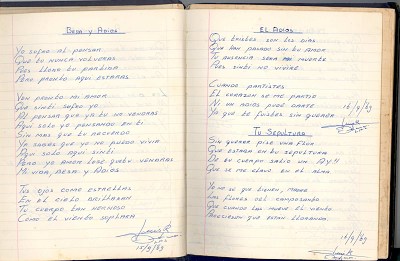 Besa y Adios
Yo sufro al pensar
Que tu nunca volveras
Pues llena tu partida
Pero pronto aqui estaras
Ven pronto mi amor
Que sin ti sufro yo
Al pensar que ya tu no vendras
Aqui solo yo pensando en ti
Sin mas que tu recuerdo
Ya sabes que yo no puedo vivir
Aqui solo aqui sin ti
Pero yo amor
Mi vida, besa y Adios
Tus ojos como estrellas
En el cielo brillaran
Tu cuerpo tan hermoso
Como el viento soplara
15/9/69
El Adios
Que tristes son los dias
Que han pasado sin tu amor
Tu ausencia sera mi muerte
Pues sin ti no vivire
Cuando partistes
El corazon se me partio
Ni un adios pude darte
Ya que te fuistes sin querer
16/9/69
Tu Sepultura
Sin querer pise una flor
Que estaba en tu sepultura
De tu cuerpo salio un Ay!!
Que se me clavo en el alma
Yo no se que tienen, madre
Las flores del camposanto
Que cuando las mueve el viento
Pareciera que estan llorando.
16/9/69